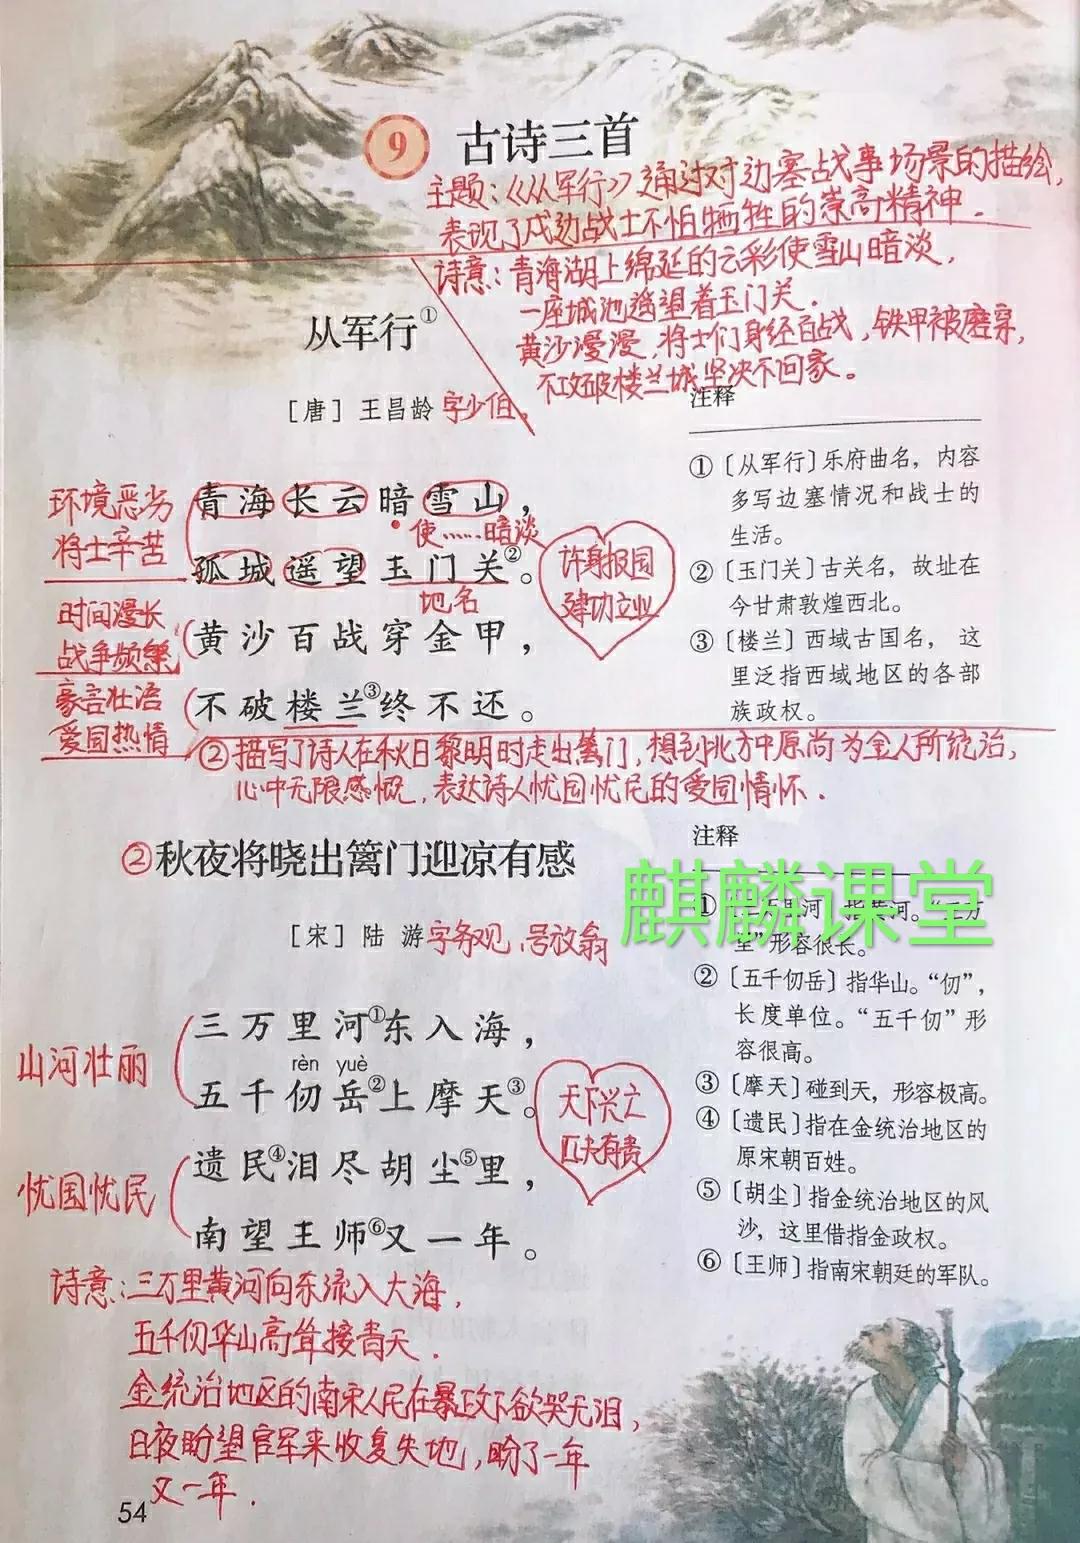 9 古诗三首
主题：《从军行》通过对边塞战事场景的描绘，
表现了戍边战士不怕牺牲的崇高精神．
诗意：青海湖上绵延的云彩使雪山暗淡，
一座城池遥望着玉门关．
黄沙漫漫，将士们身经百战，铁甲被磨穿，
不攻破楼兰城坚决不回家。
从军行①
［唐］王昌龄 字少伯，
环境恶劣
将士辛苦
青海长云暗雪山，
使……暗淡
孤城遥望玉门关②。
地名
时间漫长
战争频繁
黄沙百战穿金甲，
豪言壮语
爱国热情
不破楼兰③终不还。
许身报国
建功立业
注释
①〔从军行〕乐府曲名，内容
多写边塞情况和战士的
生活。
②〔玉门关〕古关名，故址在
今甘肃敦煌西北。
③〔楼兰〕西域古国名，这
里泛指西域地区的各部
族政权。
②描写了诗人在秋日黎明时走出篱门，想到北方中原尚为金人所统治，
心中无限感慨，表达诗人忧国忧民的爱国情怀．
②秋夜将晓出篱门迎凉有感
［宋］陆 游 字务观、号放翁
山河壮丽
三万里河①东入海，
rèn yuè
五千仞岳②上摩天③。
忧国忧民
遗民④泪尽胡尘⑤里，
南望王师⑥又一年。
天下兴亡
匹夫有责
注释
麒麟课堂
形容很长。
②〔五千仞岳〕指华山。“仞”，
长度单位。“五千仞”形
容很高。
③〔摩天〕碰到天，形容极高。
④〔遗民〕指在金统治地区的
原宋朝百姓。
⑤〔胡尘〕指金统治地区的风
沙，这里借指金政权。
⑥〔王师〕指南宋朝廷的军队。
诗意：三万里黄河向东流入大海，
五千仞华山高耸接青天．
金统治地区的南宋人民在暴政下欲哭无泪，
日夜盼望官军来收复失地，盼了一年
又一年．
54